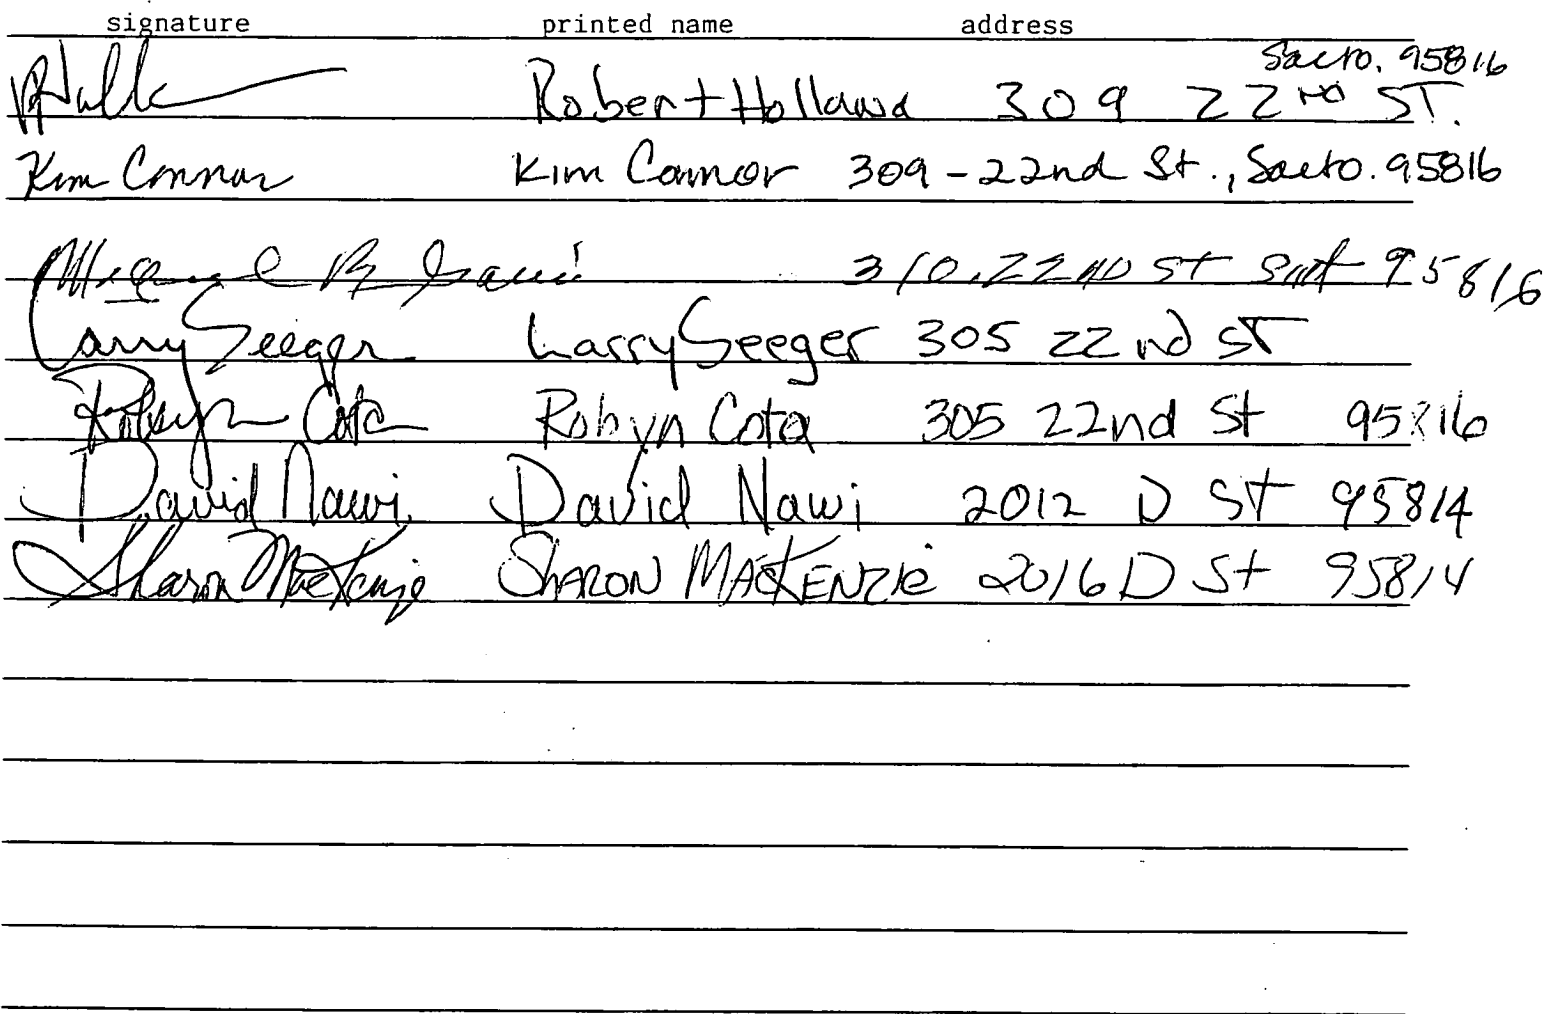 signature printed name address
Robert Holland 309 22nd ST. Sacto. 95816
Kim Connor Kim Connor 309 - 22nd St., Sacto. 95816
310 22ND ST 95816
Larry Seeger Larry Seeger 305 22nd ST
Robyn Cota Robyn Cota 305 22nd St 95816
David Nawi David Nawi 2012 D ST 95814
Sharon MacKenzie SHARON MACKENZIE 2016 D St 95814